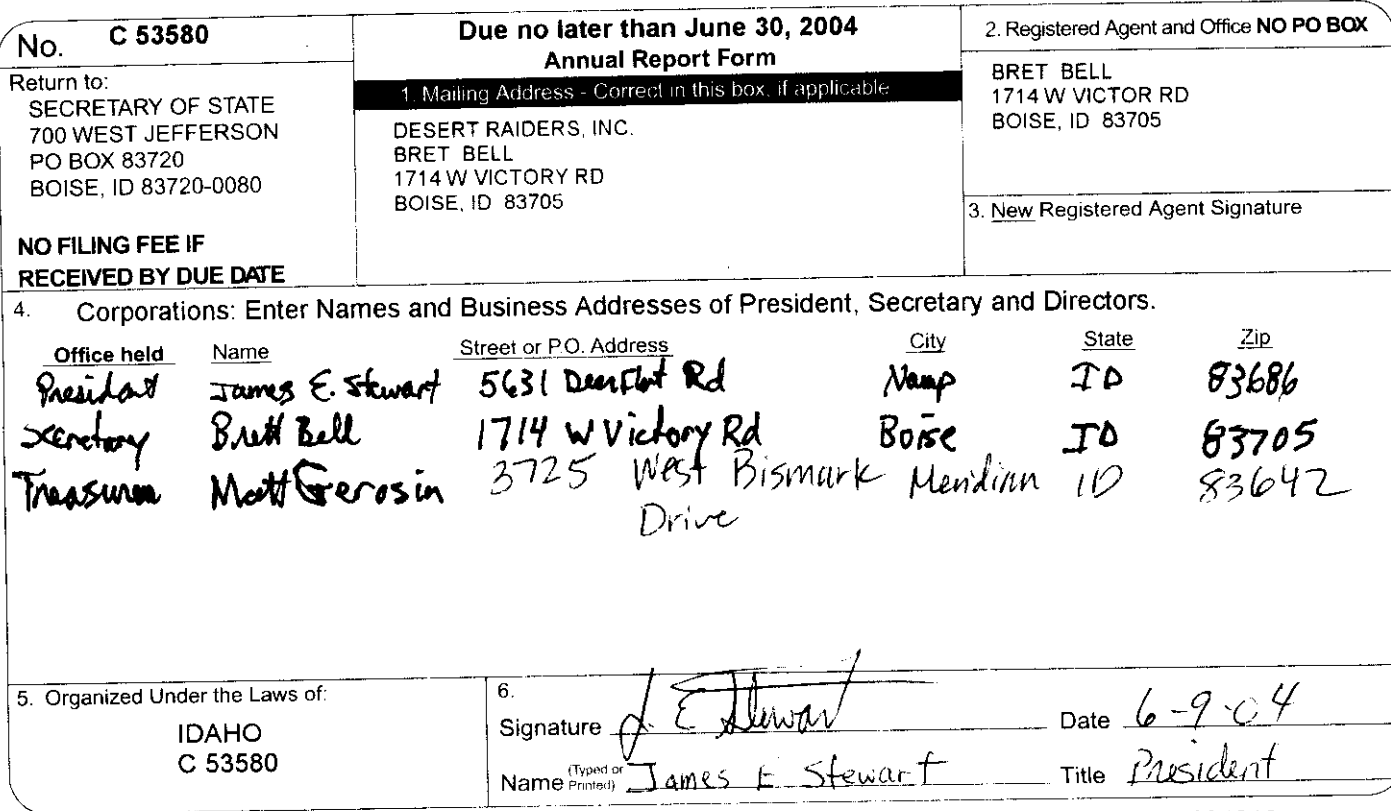 No. C 53580
Return to:
SECRETARY OF STATE
700 WEST JEFFERSON
PO BOX 83720
BOISE, ID 83720-0080
NO FILING FEE IF
RECEIVED BY DUE DATE
Due no later than June 30, 2004
Annual Report Form
1. Mailing Address - Correct in this box, if applicable
DESERT RAIDERS, INC.
BRET BELL
1714 W VICTORY RD
BOISE, ID 83705
2. Registered Agent and Office NO PO BOX
BRET BELL
1714 W VICTOR RD
BOISE, ID 83705
3. New Registered Agent Signature
4. Corporations: Enter Names and Business Addresses of President, Secretary and Directors.
Office held Name Street or P.O. Address City State Zip
President James E. Stewart 5631 Deer Flat Rd Namp ID 83686
Secretary Brett Bell 1714 W Victory Rd Boise ID 83705
Treasurer Matt Gerosin 3725 West Bismark Meridian ID 83642
Drive
5. Organized Under the Laws of:
IDAHO
C 53580
6.
Signature J. E Stewart Date 6-9-04
Name (Typed or Printed) James E Stewart Title President